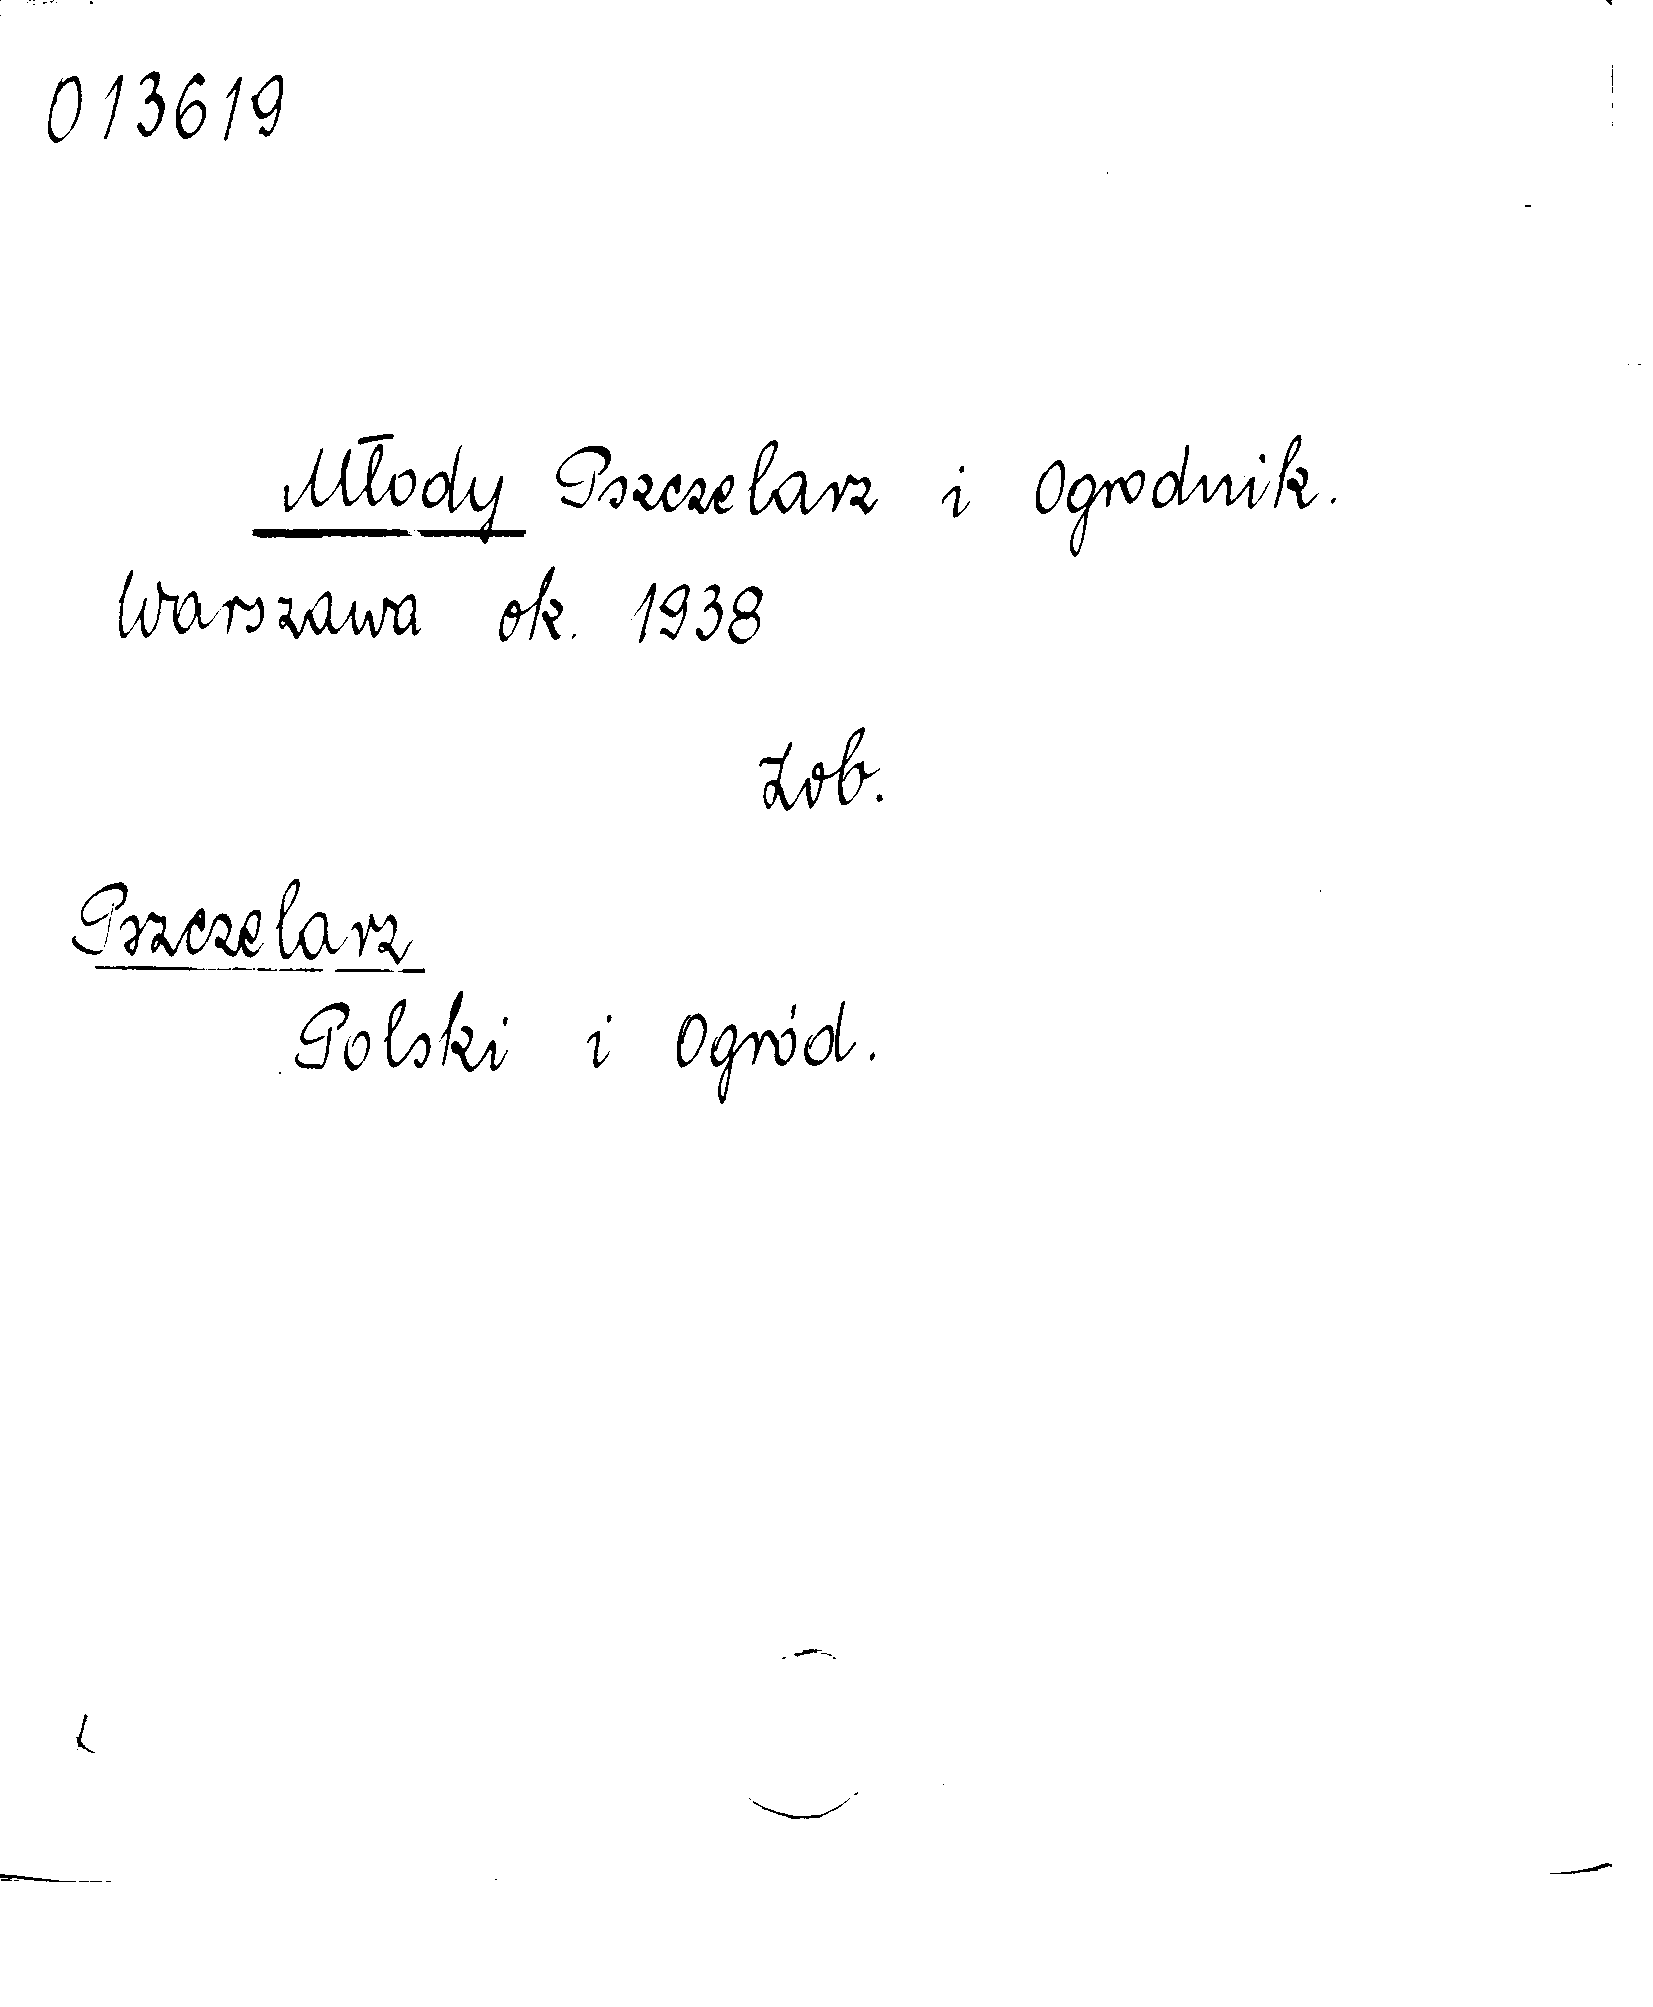 013619
Młody Pszczelarz i Ogrodnik.
Warszawa ok. 1938
Zob.
Pszczelarz
Polski i Ogród.